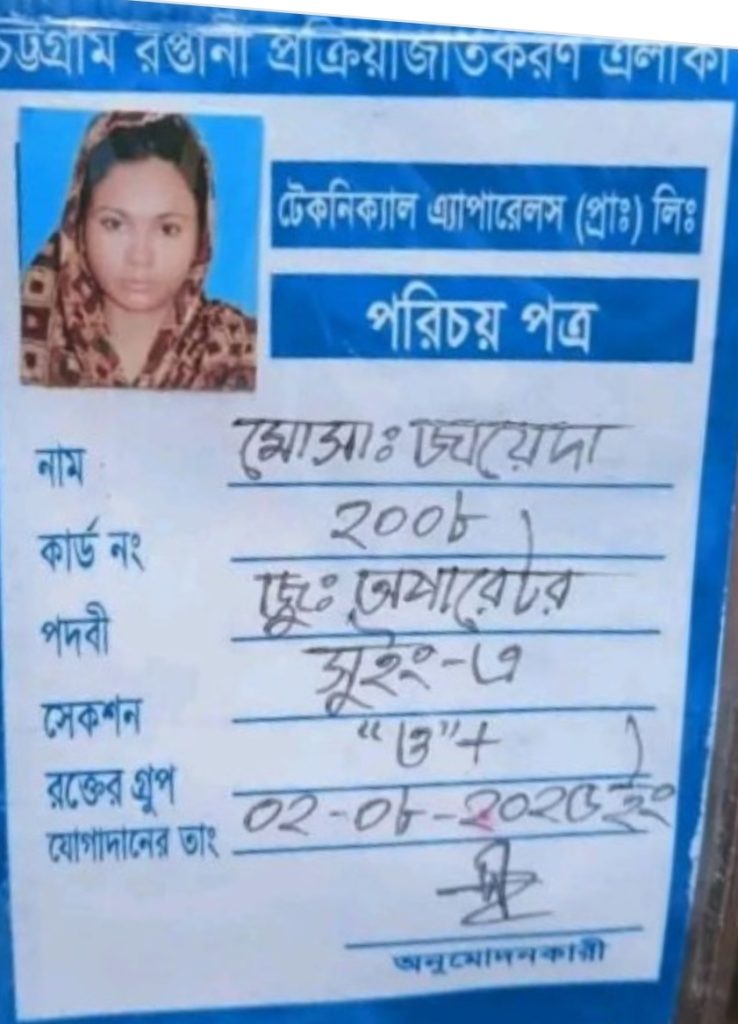 চট্টগ্রাম রপ্তানী প্রক্রিয়াজাতকরণ এলাকা
টেকনিক্যাল এ্যাপারেলস (প্রাঃ) লিঃ
পরিচয় পত্র
নাম মোসাঃ জায়েদা
কার্ড নং ২০০৮
পদবী জুঃ অপারেটর
সেকশন সুইং-এ
রক্তের গ্রুপ "ও"+
যোগাদানের তাং ০২-০৮-২০২৩ইং
অনুমোদনকারী